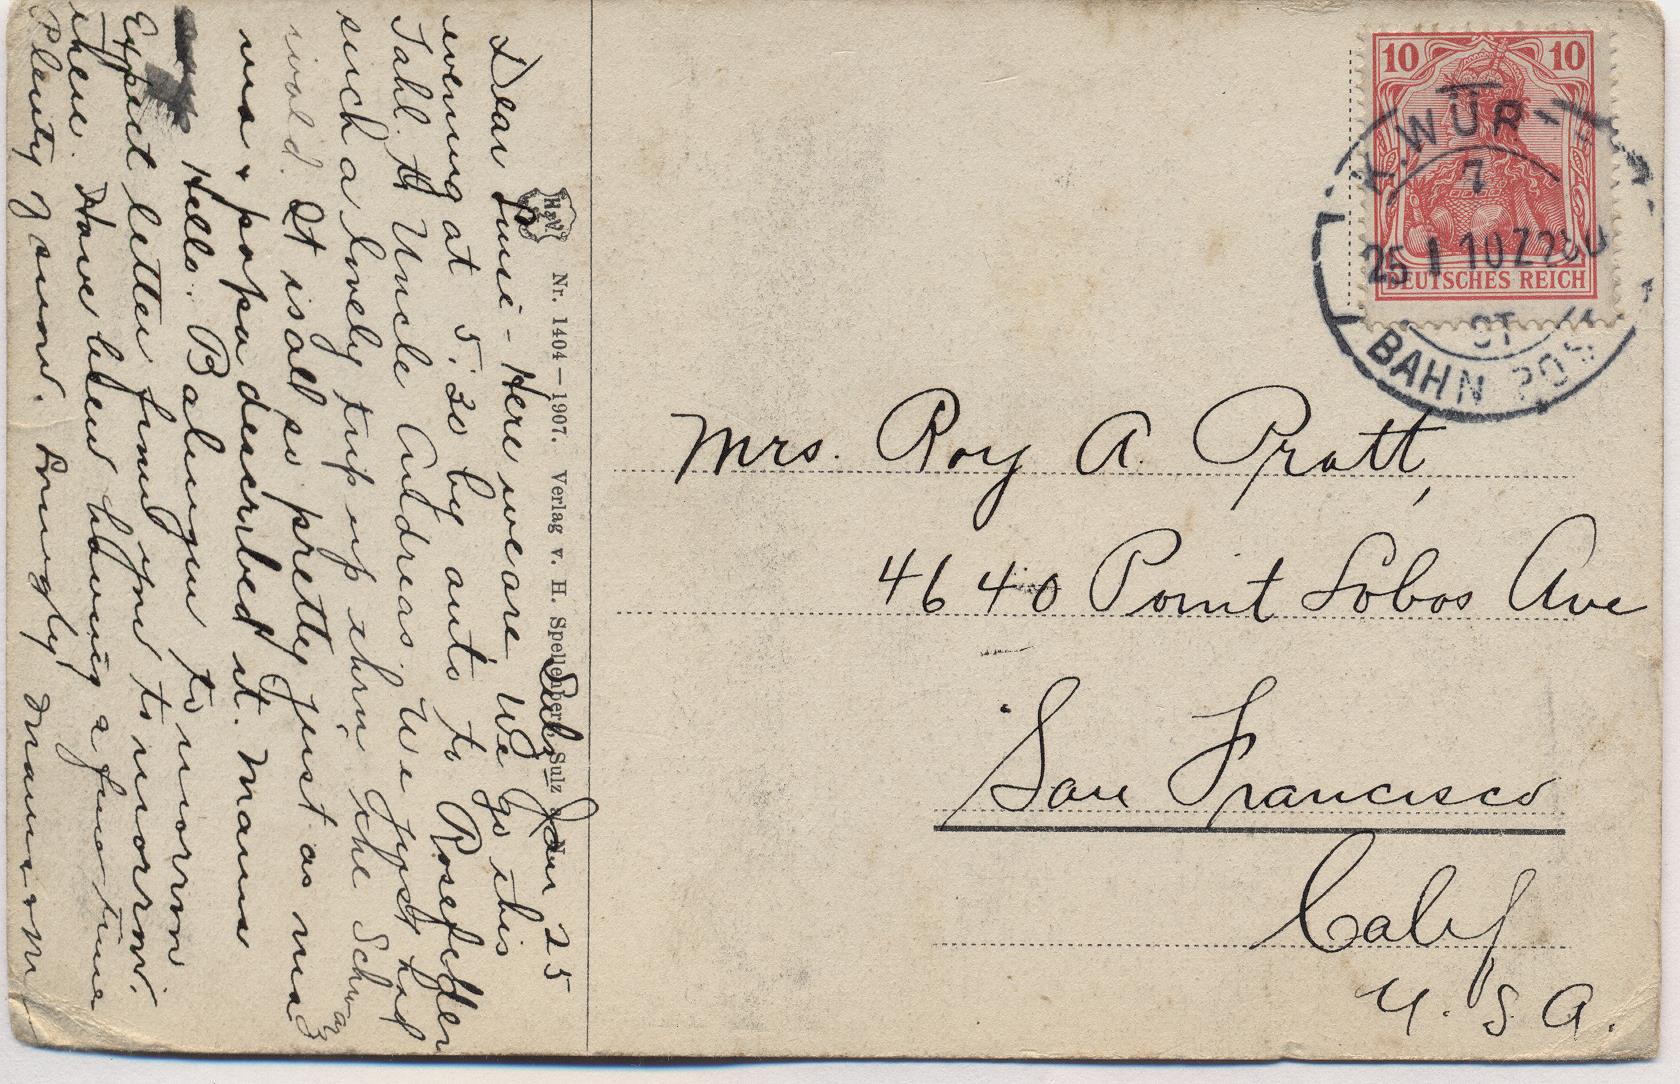 Sulz Jan 25
Dear - Here we are We go this
evening at 5:30 by auto to Rosefelder
Tahl. Uncle Andreas. We just had
such a lovely trip up thru the Schwarz
wald. It is all so pretty just as ma
ma + papa described it. Mama
Hello. Balingen to morrow
Expect letter from you to morrow.
then. Have been having a fine time
Plenty of snow. Lovingly Mama + M
Nr. 1404 — 1907. Verlag v. H. Spellenberg, Sulz a. N.
H.S.
10 10
DEUTSCHES REICH
K. WÜR
7
25 1 10 Z
BAHN POST
Mrs. Roy A. Pratt,
4640 Point Lobos Ave
San Francisco
Calif
U. S. A.